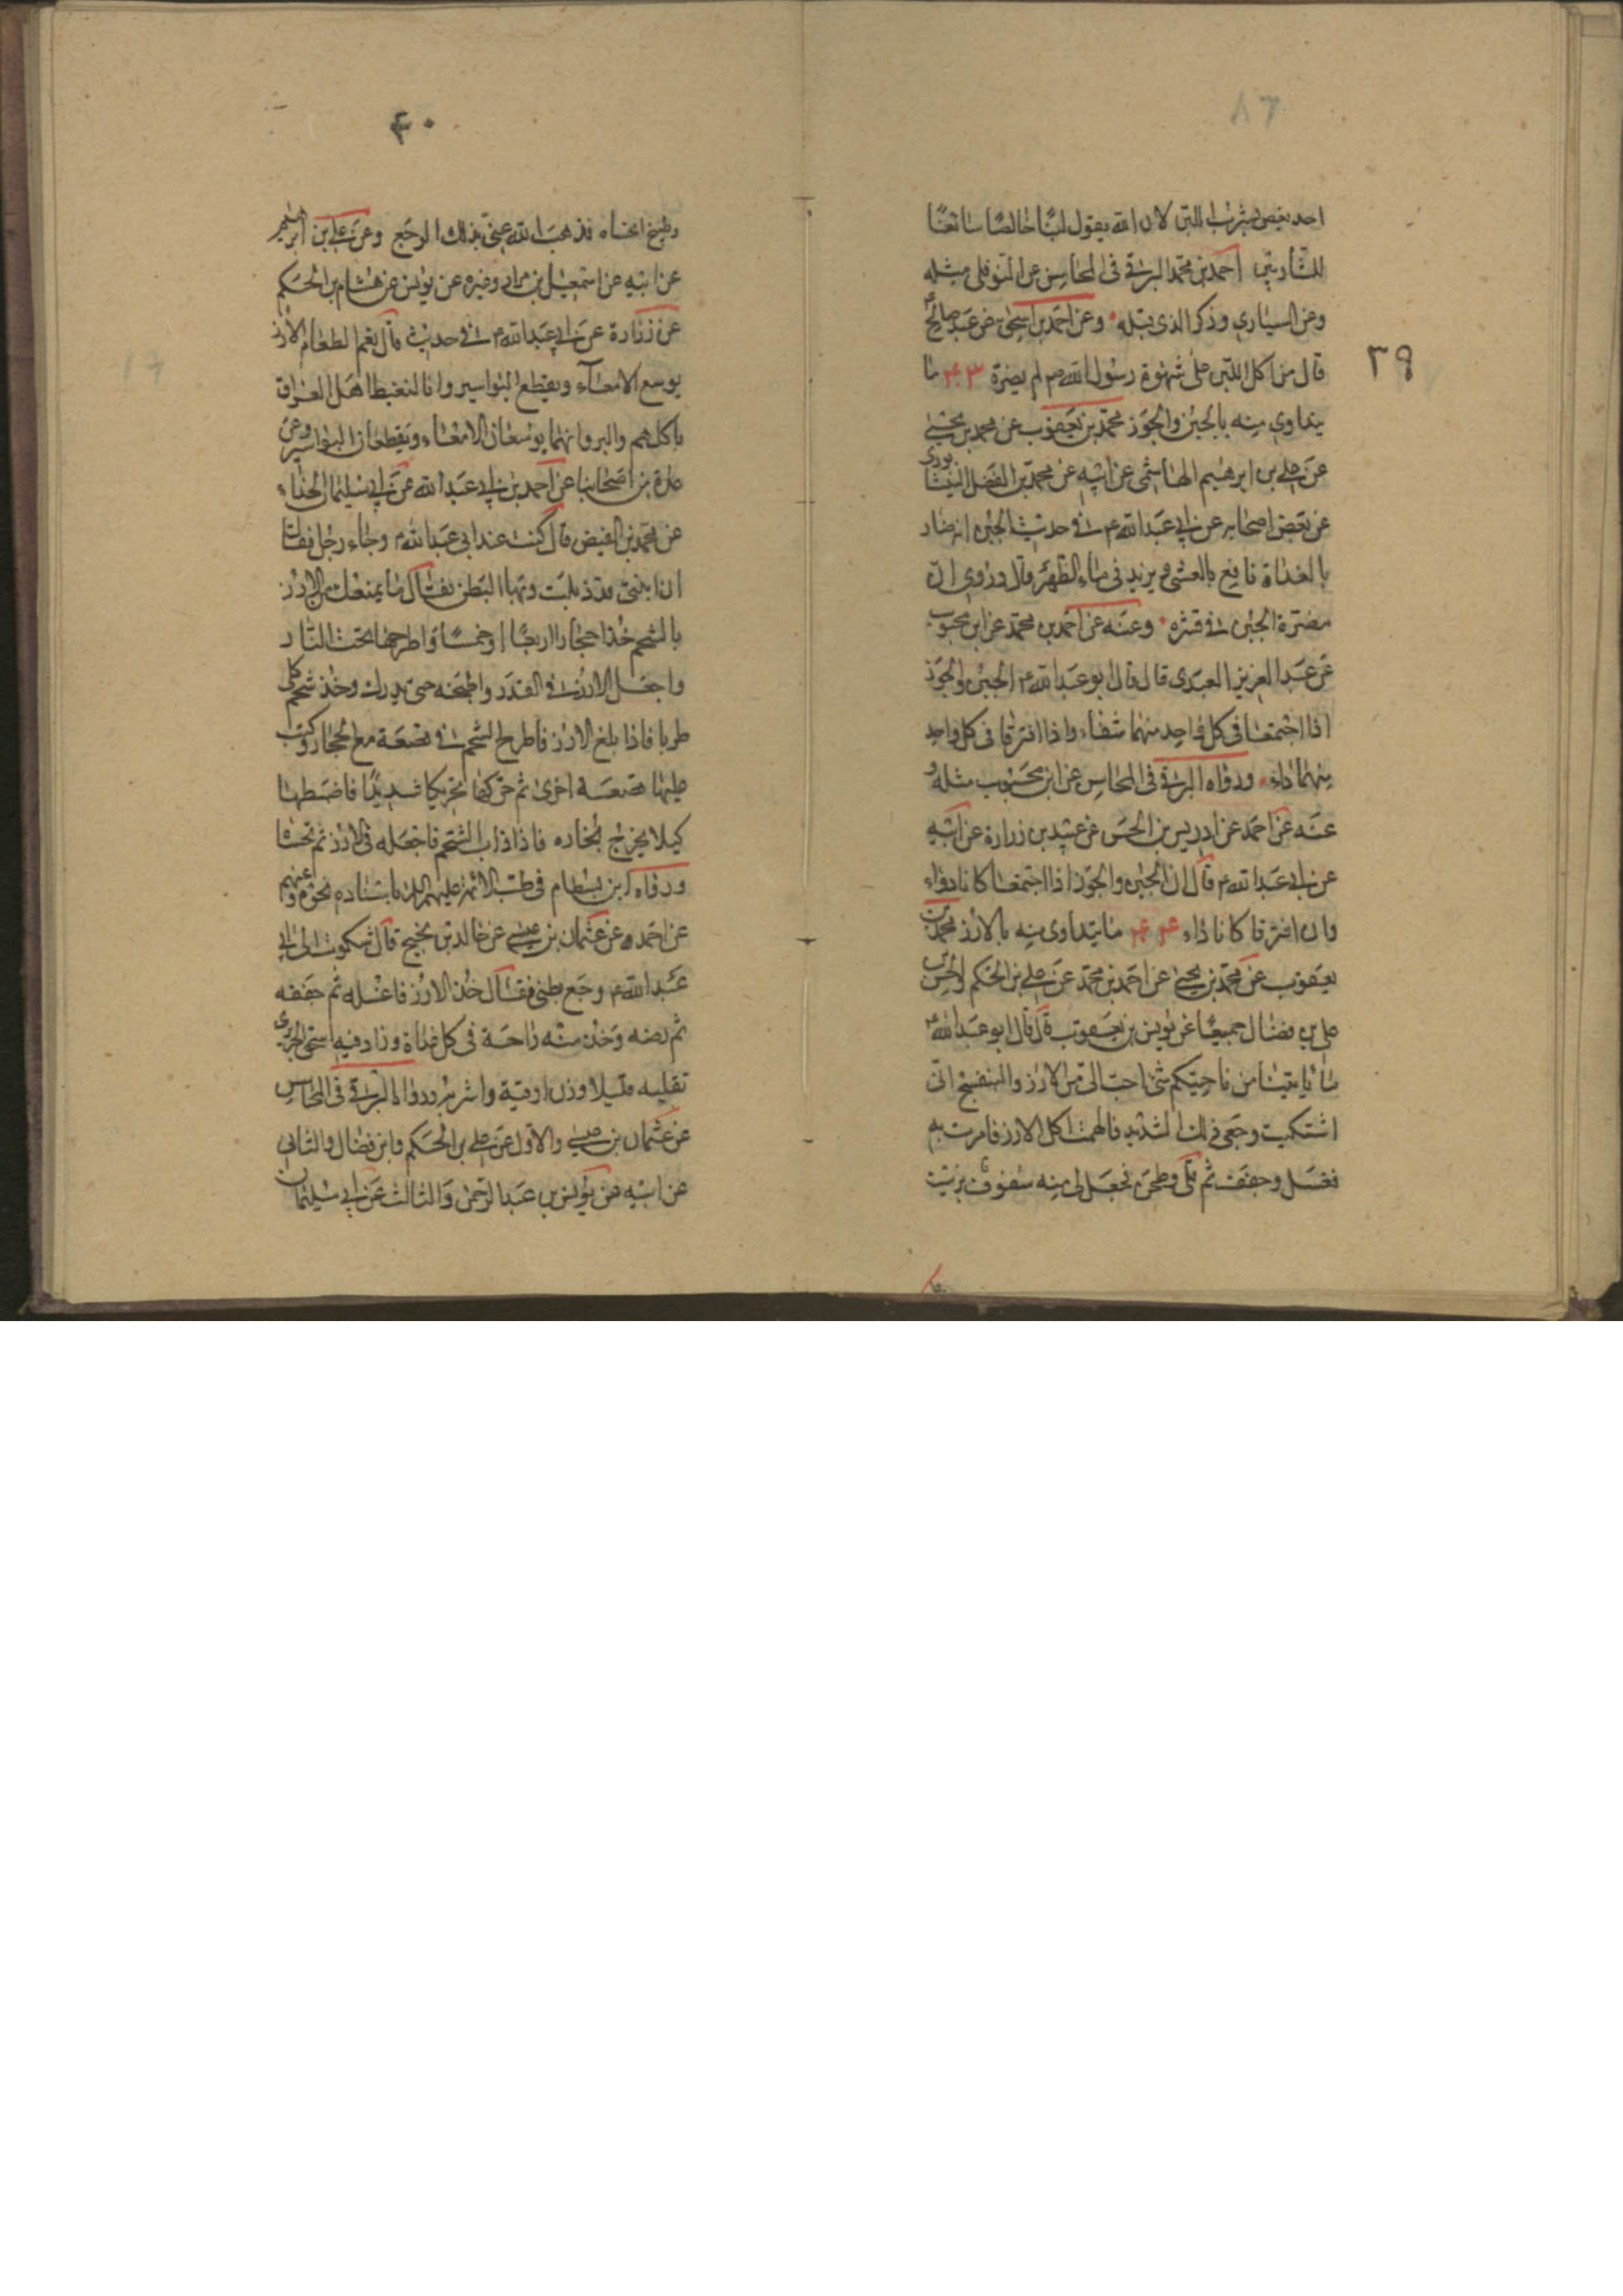 ٨٦
٣٩
احد يغص بشرب اللبن لان الله يقول لبنا خالصا سائغا
للشاربين احمد بن محمد البرقي في المحاسن عن النوفلي مثله
وعن السياري وذكر الذي قبله وعن احمد بن اسحق عن عبد صالح ع
قال من اكل اللبن على شهوة رسول الله ص لم يضره ٤٣ ما
يتداوى منه بالجبن والجوز محمد بن يعقوب عن محمد بن يحيى
عن علي بن ابرهيم الهاشمي عن ابيه عن محمد بن الفضل النيشابوري
عن بعض اصحابه عن ابي عبد الله ع في حديث الجبن انه ضار
بالغداة نافع بالعشي ويزيد في ماء الظهر وقال وروي ان
مضرة الجبن في قشره وعنه عن احمد بن محمد عن ابن محبوب
عن عبد العزيز العبدي قال قال ابو عبد الله ع الجبن والجوز
اذا اجتمعا في كل واحد منهما شفاء واذا افترقا في كل واحد
منهما داء ورواه البرقي في المحاسن عن ابن محبوب مثله و
عنه عن احمد عن ادريس بن الحسن عن عبيد بن زرارة عن ابيه
عن ابي عبد الله ع قال ان الجبن والجوز اذا اجتمعا كانا دواء
وان افترقا كانا داء ٤٤ ما يتداوى منه بالارز محمد بن
يعقوب عن محمد بن يحيى عن احمد بن محمد عن علي بن الحكم والحسن بن
علي بن فضال جميعا عن يونس بن يعقوب قال قال ابو عبد الله ع
ما ياتينا من ناحيتكم شئ احب الي من الارز والبنفسج اني
اشتكيت وجعي ذلك الشديد فالهمت اكل الارز فامرت به
فغسل وجفف ثم قلي وطحن فجعل لي منه سفوف بزيت
٤٠
وطبيخ اتحساه فذهب الله عني بذلك الوجع وعن علي بن ابرهيم
عن ابيه عن اسمعيل بن مرار وغيره عن يونس عن هشام بن الحكم
عن زرارة عن ابي عبد الله ع في حديث قال نعم الطعام الارز
يوسع الامعاء ويقطع البواسير وانا لنغبط اهل العراق
باكلهم والبر وانهما يوسعان الامعاء ويقطعان البواسير وعن
عدة من اصحابنا عن احمد بن ابي عبد الله عن ابي سليمان الحذاء
عن محمد بن الفيض قال كنت عند ابي عبد الله ع وجاء رجل فقال
ان ابنتي قد ذبلت وبها البطن فقال ما يمنعك من الارز
بالشحم خذ احجارا اربعا او خمسا واطرحها تحت النار
واجعل الارز في القدر واطبخه حتى يدرك وخذ شحم كلى
طريا فاذا بلغ الارز فاطرح الشحم في قصعة مع الحجار وكب
عليها قصعة اخرى ثم حركها تحريكا شديدا فاضبطها
كيلا يخرج بخاره فاذا ذاب الشحم فاجعله في الارز ثم تحساه
ورواه ابن بسطام في طب الائمة عليهم السلم باسناده نحوه وعنهم
عن احمد عن عثمان بن عيسى عن خالد بن نجيح قال شكوت الى ابي
عبد الله ع وجع بطني فقال خذ الارز فاغسله ثم جففه
ثم رضه وخذ منه راحة في كل غداة وزاد فيه اسحق الجريري
تقليه قليلا وزن اوقية واشربه ورواه البرقي في المحاسن
عن عثمان بن عيسى والاول عن علي بن الحكم وابن فضال والثاني
عن ابيه عن يونس بن عبد الرحمن والثالث عن ابي سليمان